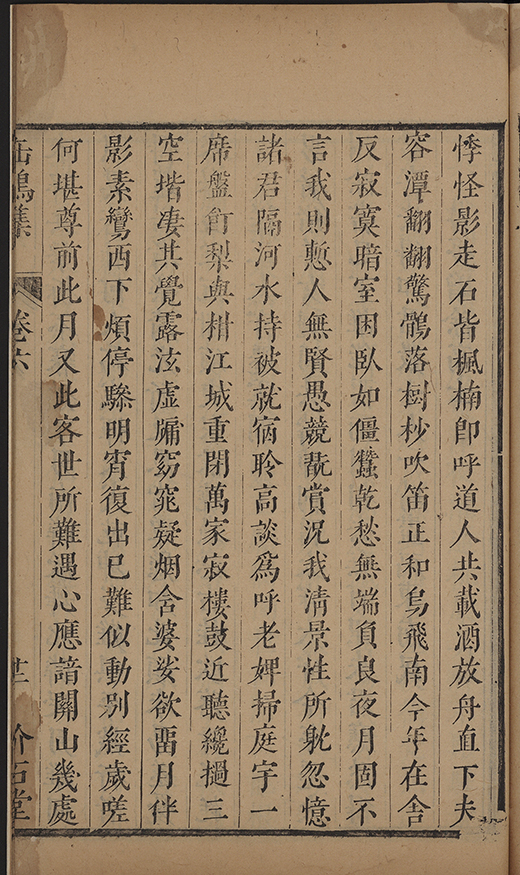 悸怪影走石皆楓楠卽呼道人共載酒放舟直下夫
容潭翻翻驚鶻落樹杪吹笛正和烏飛南今年在舍
反寂寞暗室困臥如僵蠶乾愁無端負良夜月固不
言我則慙人無賢愚競翫賞況我淸景性所躭忽憶
諸君隔河水持被就宿聆高談爲呼老婢掃庭宇一
席盤飣梨與柑江城重閉萬家寂樓鼓近聽纔撾三
空堦凄其覺露泫虛牖窈窕疑烟含婆娑欲畱月伴
影素鸞西下煩停驂明宵復出已難似動别經歲嗟
何堪尊前此月又此客世所難遇心應諳關山幾處
卷六
廿二
介石堂